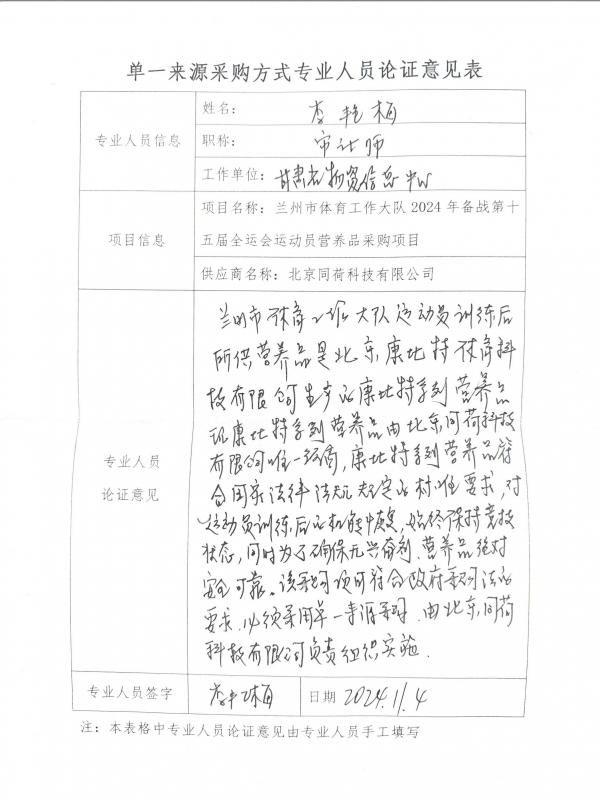 单一来源采购方式专业人员论证意见表
专业人员信息
姓名：李艳梅
职称：审计师
工作单位：甘肃省物资信息中心
项目信息
项目名称：兰州市体育工作大队2024年备战第十
五届全运会运动员营养品采购项目
供应商名称：北京同荷科技有限公司
专业人员
论证意见
兰州市体育工作大队运动员训练后
所供营养品是北京康比特体育科
技有限公司生产的康比特系列营养品
现康比特系列营养品由北京同荷科技
有限公司唯一经销，康比特系列营养品符
合国家法律法规规定的标准要求，对
运动员训练后的机能恢复，始终保持竞技
状态，同时为了确保无兴奋剂，营养品绝对
安全可靠。该采购项目符合政府采购法的
要求，必须采用单一来源采购，由北京同荷
科技有限公司负责组织实施．
专业人员签字
李艳梅
日期 2024.11.4
注：本表格中专业人员论证意见由专业人员手工填写